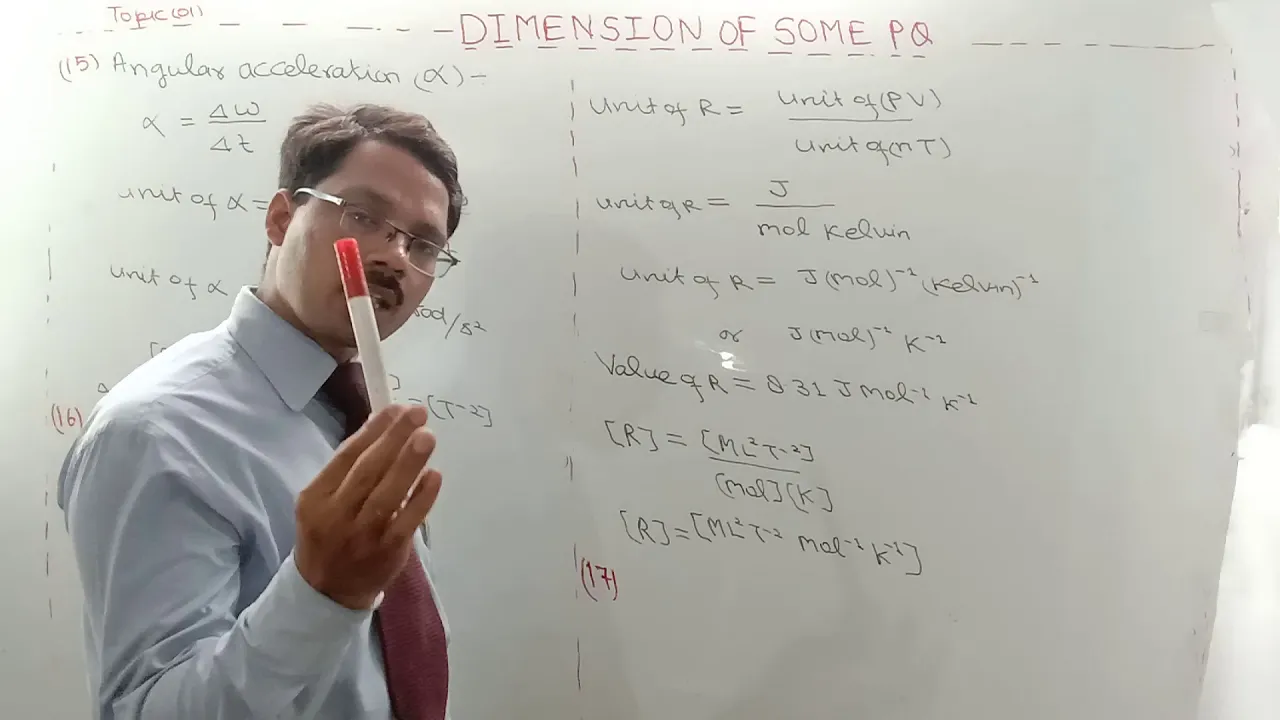 Topic (01)
DIMENSION OF SOME PQ
(15) Angular acceleration (α) -
α = Δω
Δt
unit of α =
unit of α
rad/s²
= [T-2]
(16)
unit of R = unit of (PV)
unit of (nT)
unit of R = J
mol Kelvin
unit of R = J(mol)⁻¹ (Kelvin)⁻¹
or J(mol)⁻¹ K⁻¹
Value of R = 8 31 J mol⁻¹ K⁻¹
[R] = [ML²T-2]
[mol][K]
[R] = [ML²T-2 mol⁻¹ K⁻¹]
(17)